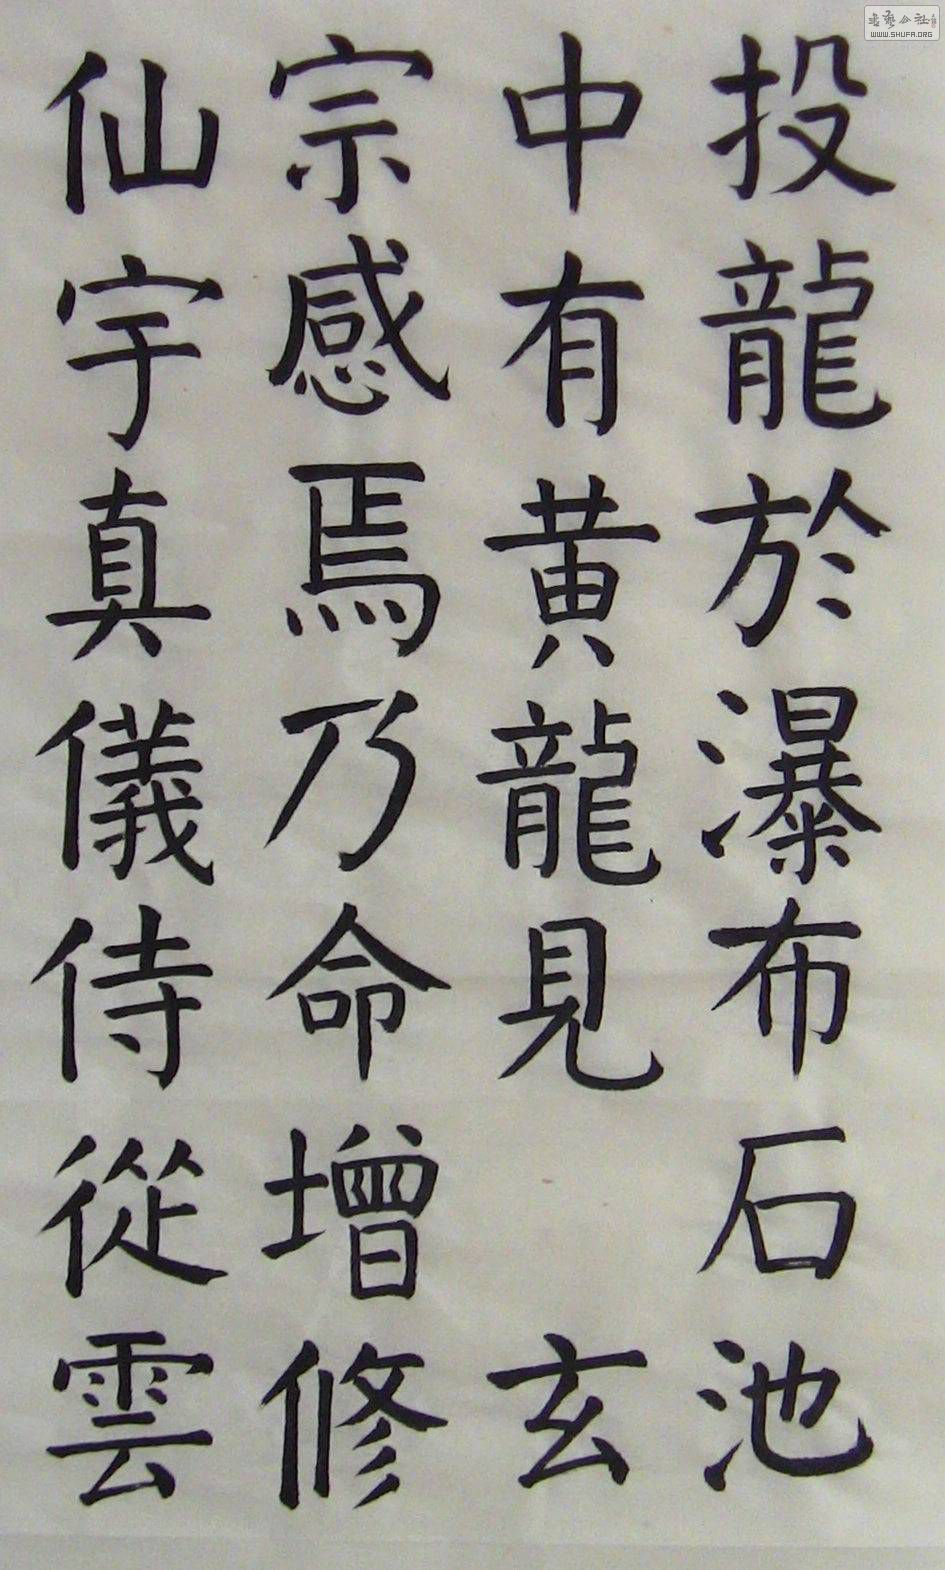 投龍於瀑布石池
中有黄龍見 玄
宗感焉乃命增修
仙宇真儀侍從雲
WWW.SHUFA.ORG